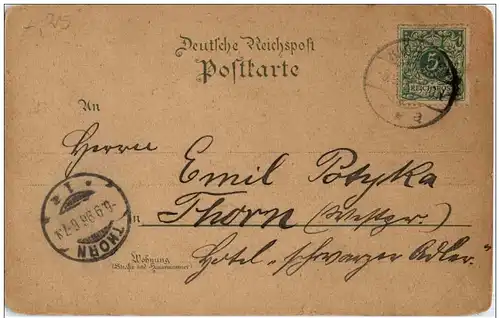 -,25
Deutsche Reichspost
Postkarte
5
REICHSPOST
An
Herrn
Emil Potyka
in Thorn (Westpr.)
Wohnung
(Straße und Hausnummer)
Hotel „schwarzer Adler“
THORN